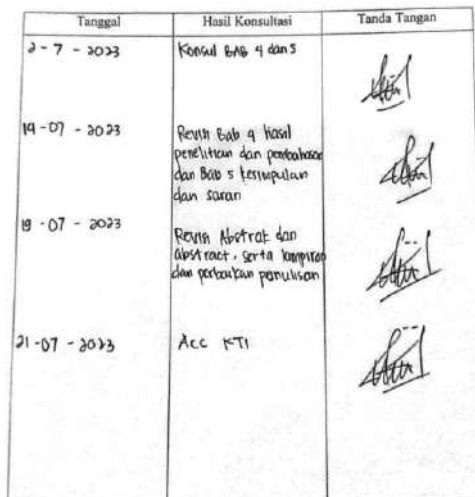 Tanggal Hasil Konsultasi Tanda Tangan
2 - 7 - 2023 Konsul BAB 4 dan 5
19 - 07 - 2023 Revisi Bab 4 hasil
penelitian dan pembahasan
dan Bab 5 kesimpulan
dan saran
19 - 07 - 2023 Revisi Abstrak dan
abstract, serta lampiran
dan perbaikan penulisan
21 - 07 - 2023 Acc KTI